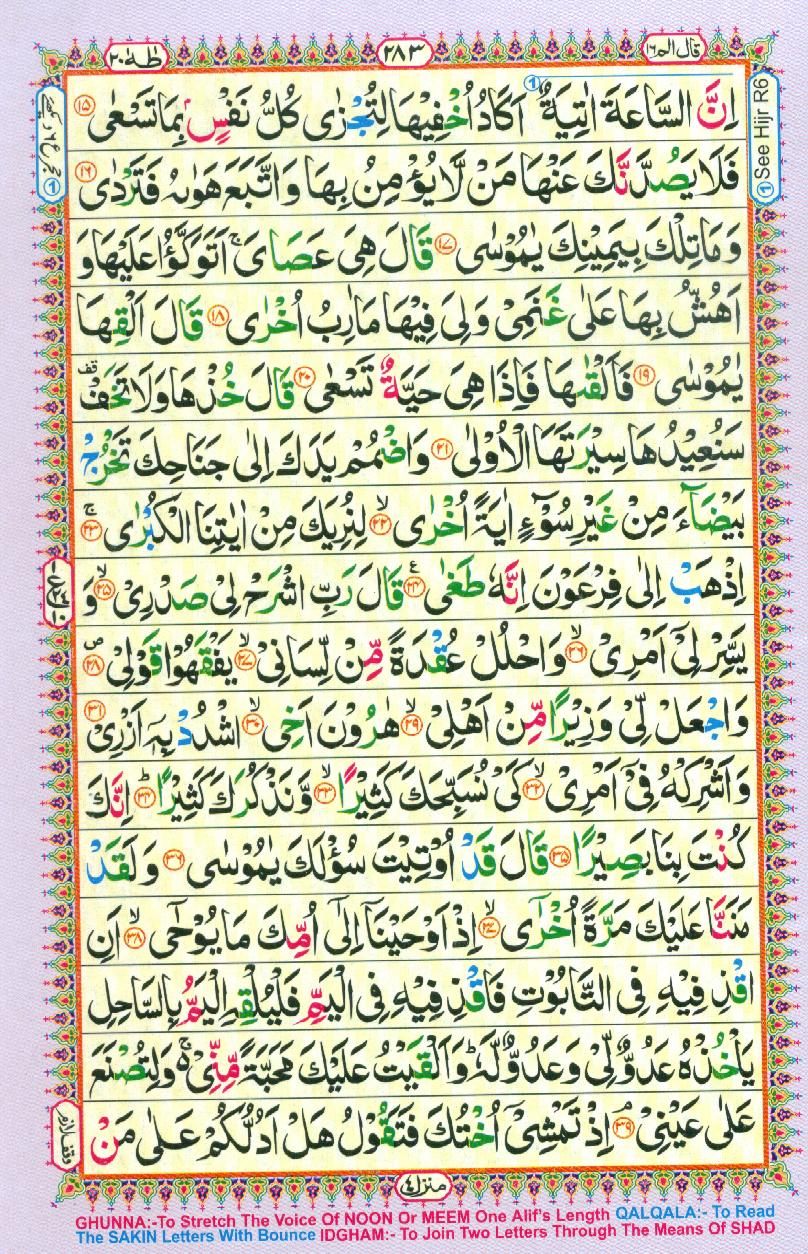 قال الم ۱۶
۲۸۳
طٰهٰ ۲۰
① See Hijr R6
اِنَّ السَّاعَةَ اٰتِيَةٌ اَكَادُ اُخْفِيْهَا لِتُجْزٰى كُلُّ نَفْسٍۭ بِمَا تَسْعٰى ۱۵
فَلَا يَصُدَّنَّكَ عَنْهَا مَنْ لَّا يُؤْمِنُ بِهَا وَاتَّبَعَ هَوٰىهُ فَتَرْدٰى ۱۶
وَمَا تِلْكَ بِيَمِيْنِكَ يٰمُوْسٰى ۱۷ قَالَ هِىَ عَصَاىَ ۚ اَتَوَكَّؤُا عَلَيْهَا وَ
اَهُشُّ بِهَا عَلٰى غَنَمِىْ وَلِىَ فِيْهَا مَاٰرِبُ اُخْرٰى ۱۸ قَالَ اَلْقِهَا
يٰمُوْسٰى ۱۹ فَاَلْقٰىهَا فَاِذَا هِىَ حَيَّةٌ تَسْعٰى ۲۰ قَالَ خُذْهَا وَلَا تَخَفْ ۥقف
سَنُعِيْدُهَا سِيْرَتَهَا الْاُوْلٰى ۲۱ وَاضْمُمْ يَدَكَ اِلٰى جَنَاحِكَ تَخْرُجْ
بَيْضَآءَ مِنْ غَيْرِ سُوْٓءٍ اٰيَةً اُخْرٰى ۙ۲۲ لِنُرِيَكَ مِنْ اٰيٰتِنَا الْكُبْرٰى ۚ۲۳
اِذْهَبْ اِلٰى فِرْعَوْنَ اِنَّهٗ طَغٰى ۲۴ قَالَ رَبِّ اشْرَحْ لِىْ صَدْرِىْ ۙ۲۵ وَ
يَسِّرْ لِىْٓ اَمْرِىْ ۙ۲۶ وَاحْلُلْ عُقْدَةً مِّنْ لِّسَانِىْ ۙ۲۷ يَفْقَهُوْا قَوْلِىْ ۪۲۸
وَاجْعَلْ لِّىْ وَزِيْرًا مِّنْ اَهْلِىْ ۙ۲۹ هٰرُوْنَ اَخِى ۙ۳۰ اشْدُدْ بِهٖٓ اَزْرِىْ ۙ۳۱
وَاَشْرِكْهُ فِىْٓ اَمْرِىْ ۙ۳۲ كَىْ نُسَبِّحَكَ كَثِيْرًا ۙ۳۳ وَّنَذْكُرَكَ كَثِيْرًا ؕ۳۴ اِنَّكَ
كُنْتَ بِنَا بَصِيْرًا ۳۵ قَالَ قَدْ اُوْتِيْتَ سُؤْلَكَ يٰمُوْسٰى ۳۶ وَلَقَدْ
مَنَنَّا عَلَيْكَ مَرَّةً اُخْرٰٓى ۙ۳۷ اِذْ اَوْحَيْنَآ اِلٰٓى اُمِّكَ مَا يُوْحٰٓى ۙ۳۸ اَنِ
اقْذِفِيْهِ فِى التَّابُوْتِ فَاقْذِفِيْهِ فِى الْيَمِّ فَلْيُلْقِهِ الْيَمُّ بِالسَّاحِلِ
يَاْخُذْهُ عَدُوٌّ لِّىْ وَعَدُوٌّ لَّهٗ ؕ وَاَلْقَيْتُ عَلَيْكَ مَحَبَّةً مِّنِّىْ ۚ وَلِتُصْنَعَ
عَلٰى عَيْنِىْ ۘ۳۹ اِذْ تَمْشِىْٓ اُخْتُكَ فَتَقُوْلُ هَلْ اَدُلُّكُمْ عَلٰى مَنْ
منزل ۴
GHUNNA:-To Stretch The Voice Of NOON Or MEEM One Alif's Length QALQALA:- To Read
The SAKIN Letters With Bounce IDGHAM:- To Join Two Letters Through The Means Of SHAD